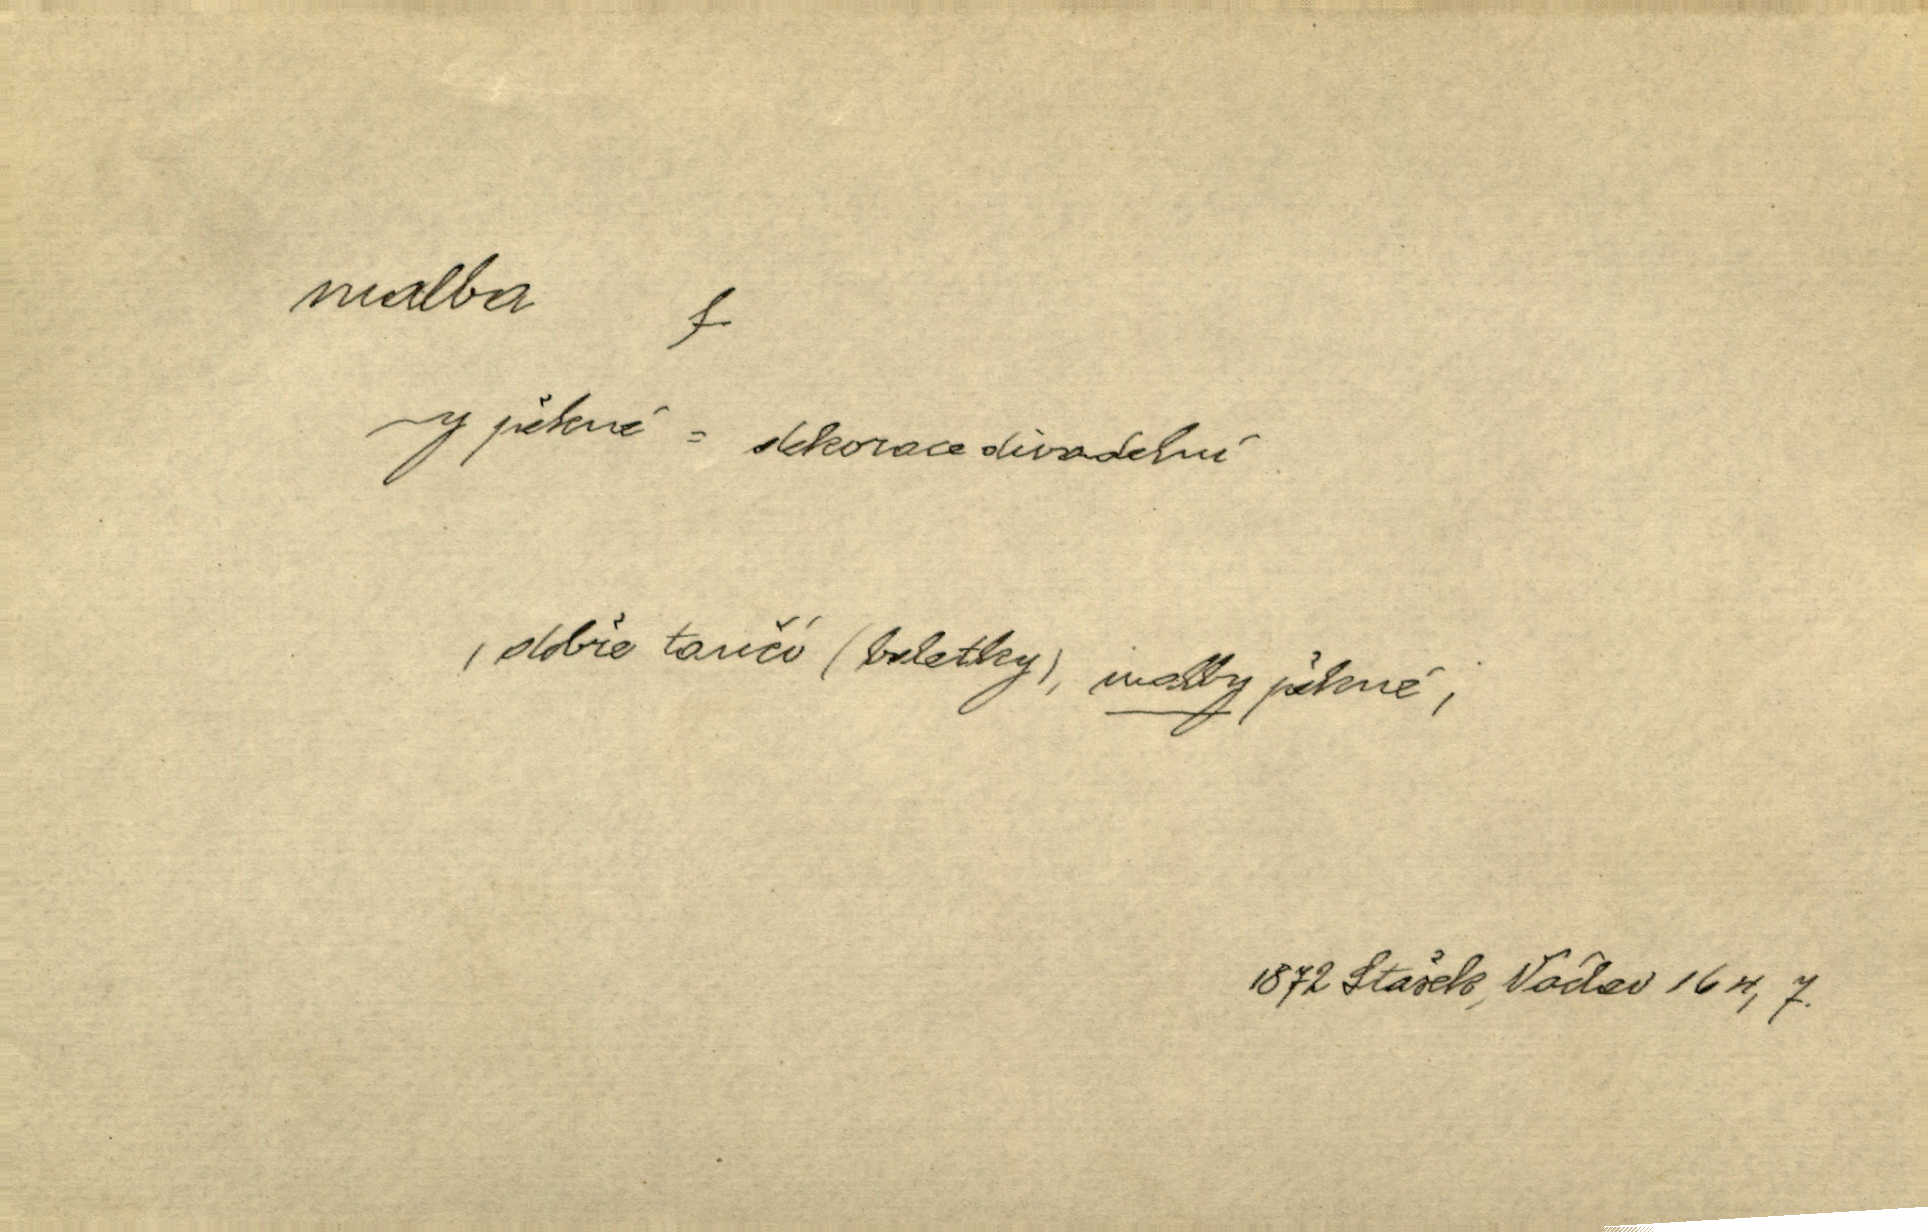 malba f
~y pěkné = dekorace divadelní
, dobře tančí (baletky), malby pěkné;
1872 Stašek, Václav 164, 7.